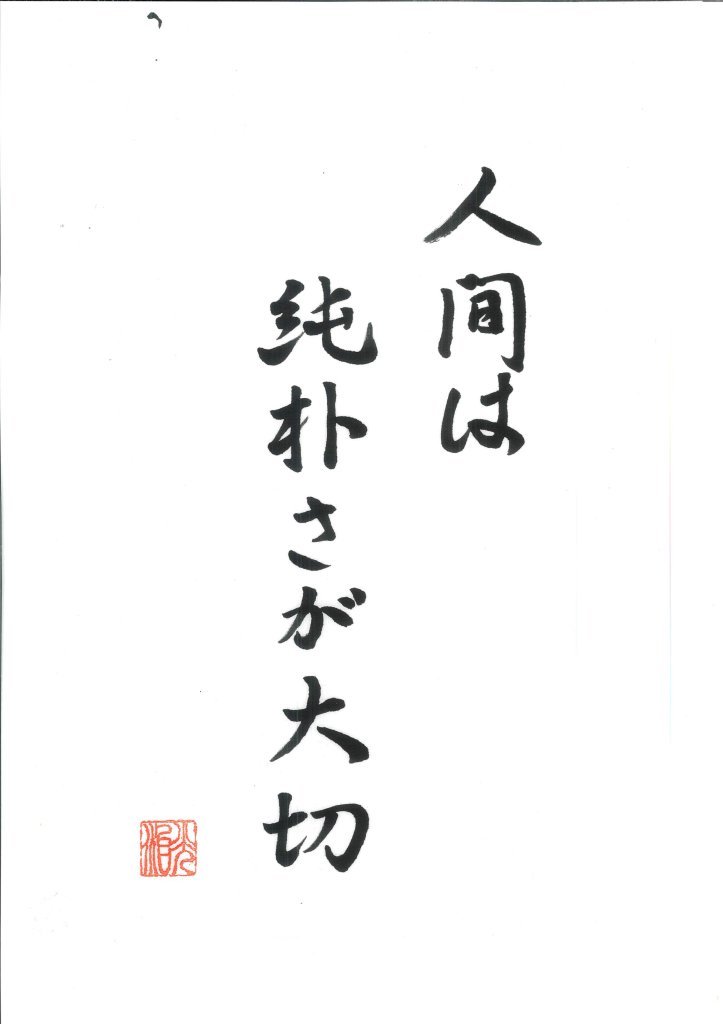 人間は
純朴さが大切